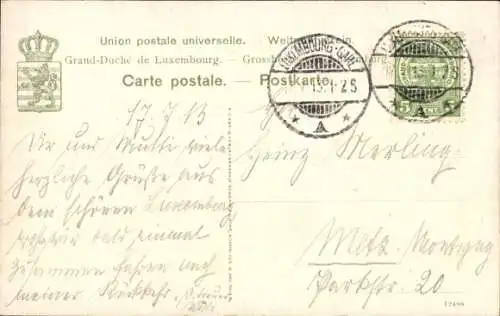 Union postale universelle. — Weltpostverein.
Grand-Duché de Luxembourg. —
Carte postale. — Postkarte.
LUXEMBOURG-GARE
1-2 S
A
5
17.7.13
Dir und Mutti viele
herzliche Grüße aus
dem schönen Luxemburg
bald einmal
zusammen fahren nach
meiner Rückkehr
Heinz Merling
Metz - Montigny
Parkstr. 20